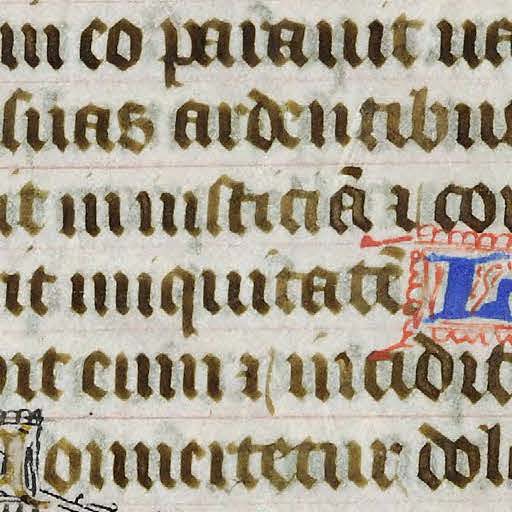 in eo parauit ua
suas ardentibus
it iniusticiã ⁊ con
it iniquitatē. L
it eum ⁊ incidit
Conuertetur dol